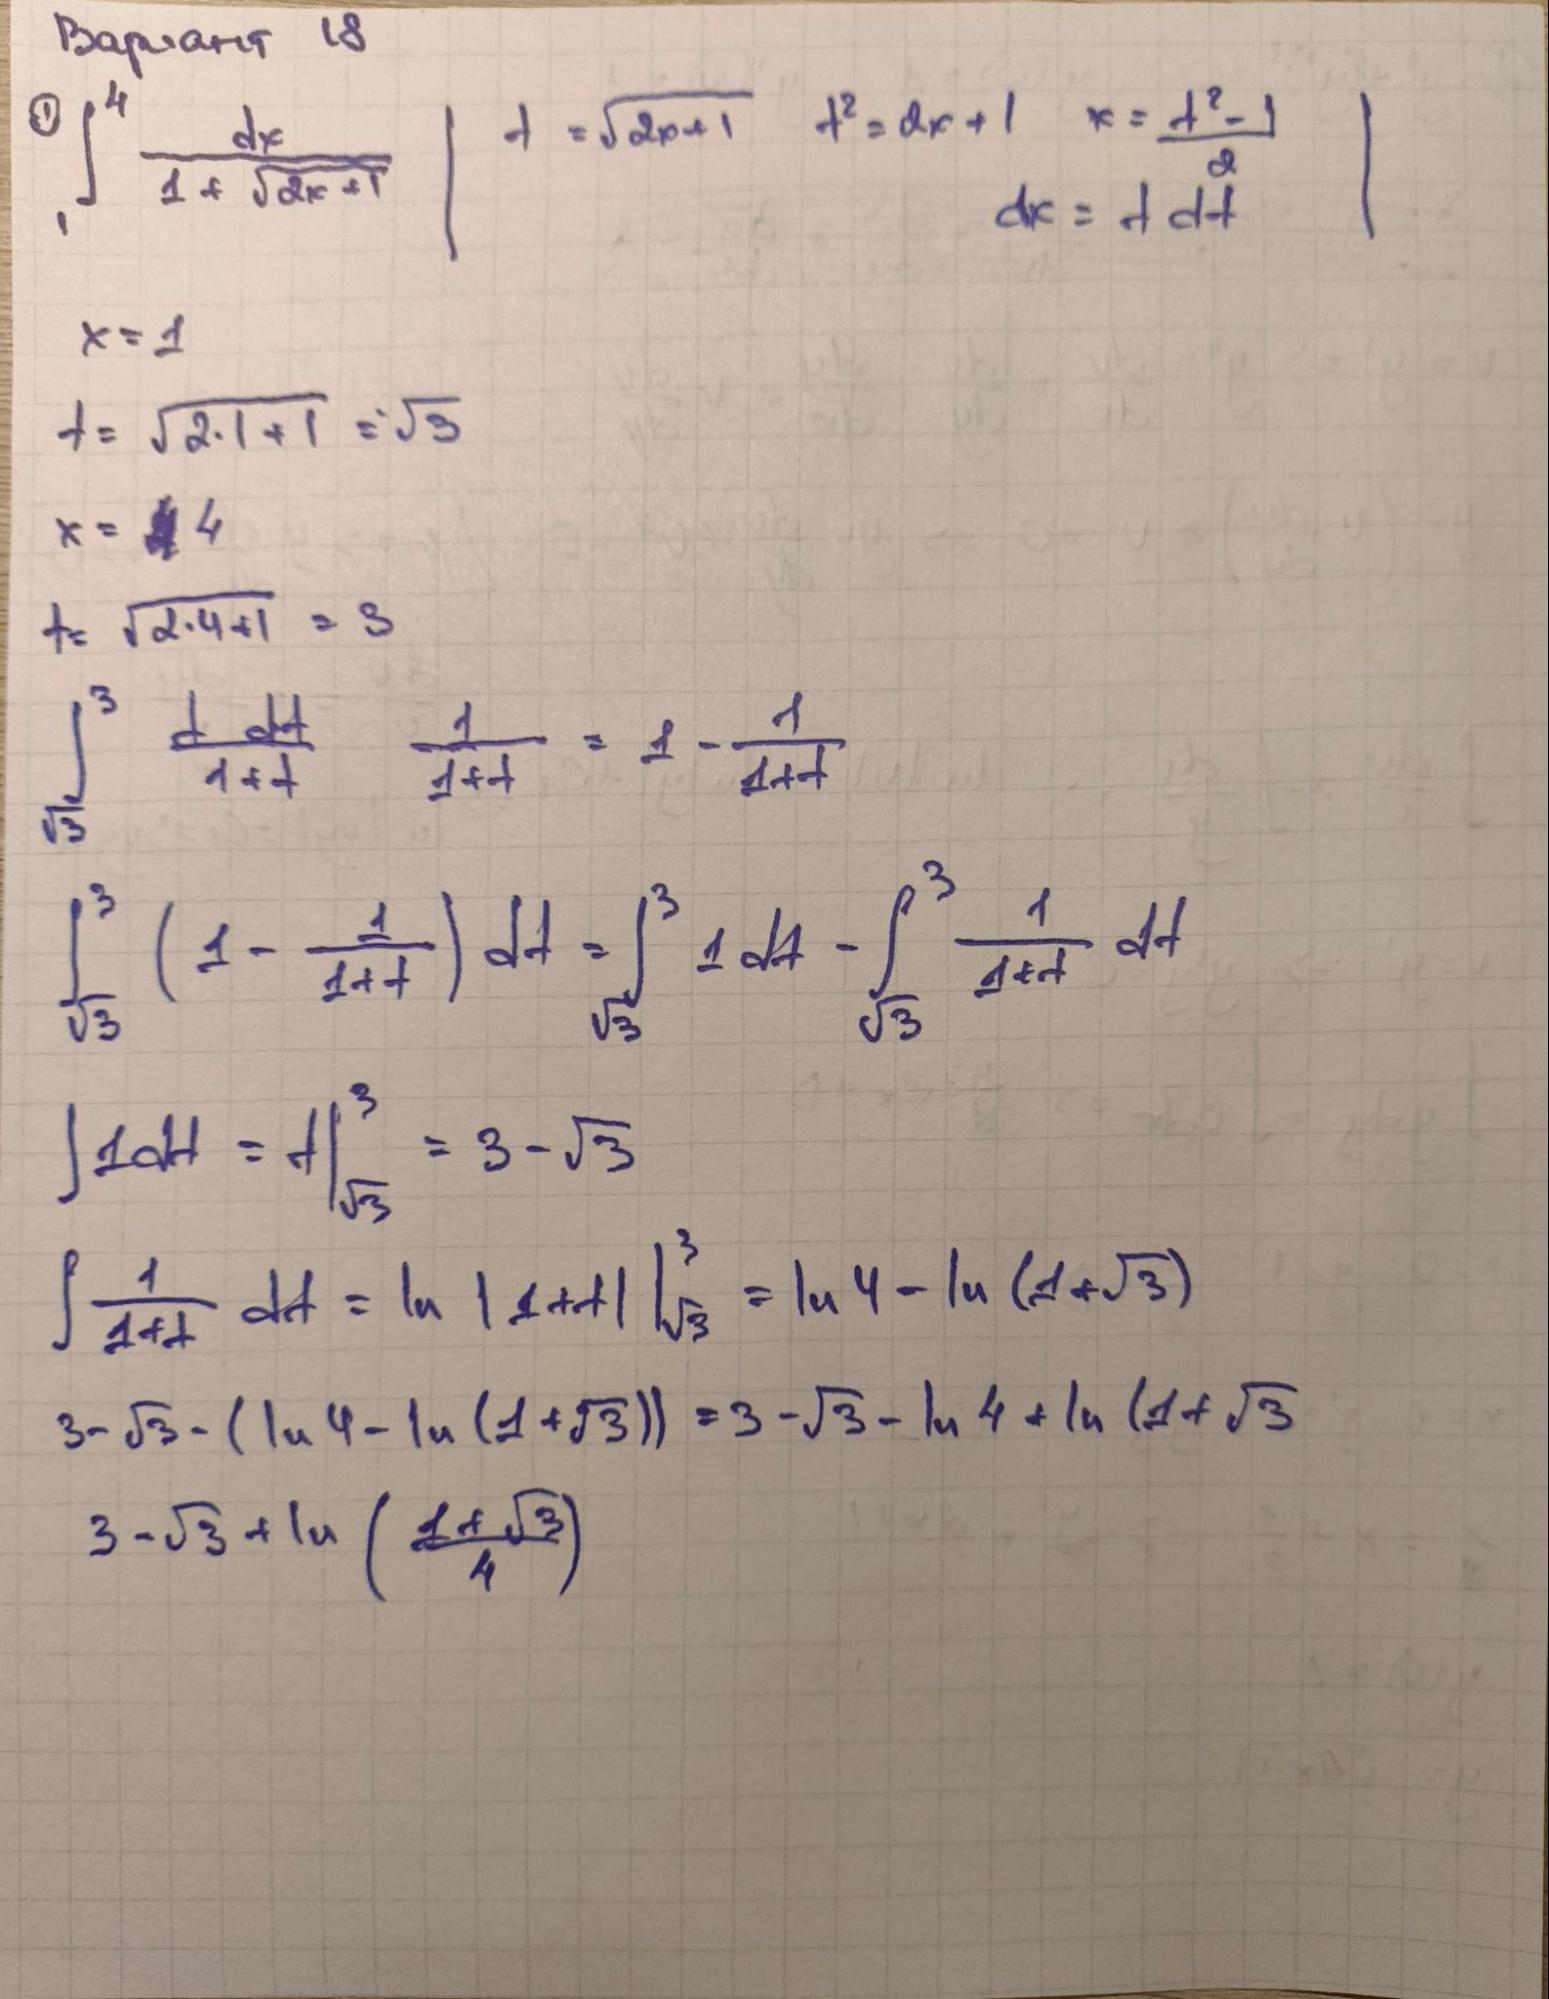 Вариант 18
① ∫₁⁴ dx / (1 + √(2x+1)) | t = √(2x+1) t² = 2x + 1 x = (t² - 1) / 2
dx = t dt |
x = 1
t = √(2·1+1) = √3
x = 4
t = √(2·4+1) = 3
∫_{√3}^3 t dt / (1+t) 1 / (1+t) = 1 - 1 / (1+t)
∫_{√3}^3 (1 - 1 / (1+t)) dt = ∫_{√3}^3 1 dt - ∫_{√3}^3 1 / (1+t) dt
∫ 1 dt = t |_{√3}^3 = 3 - √3
∫ 1 / (1+t) dt = ln |1+t| |_{√3}^3 = ln 4 - ln (1+√3)
3 - √3 - (ln 4 - ln (1+√3)) = 3 - √3 - ln 4 + ln (1+√3
3 - √3 + ln ((1+√3) / 4)